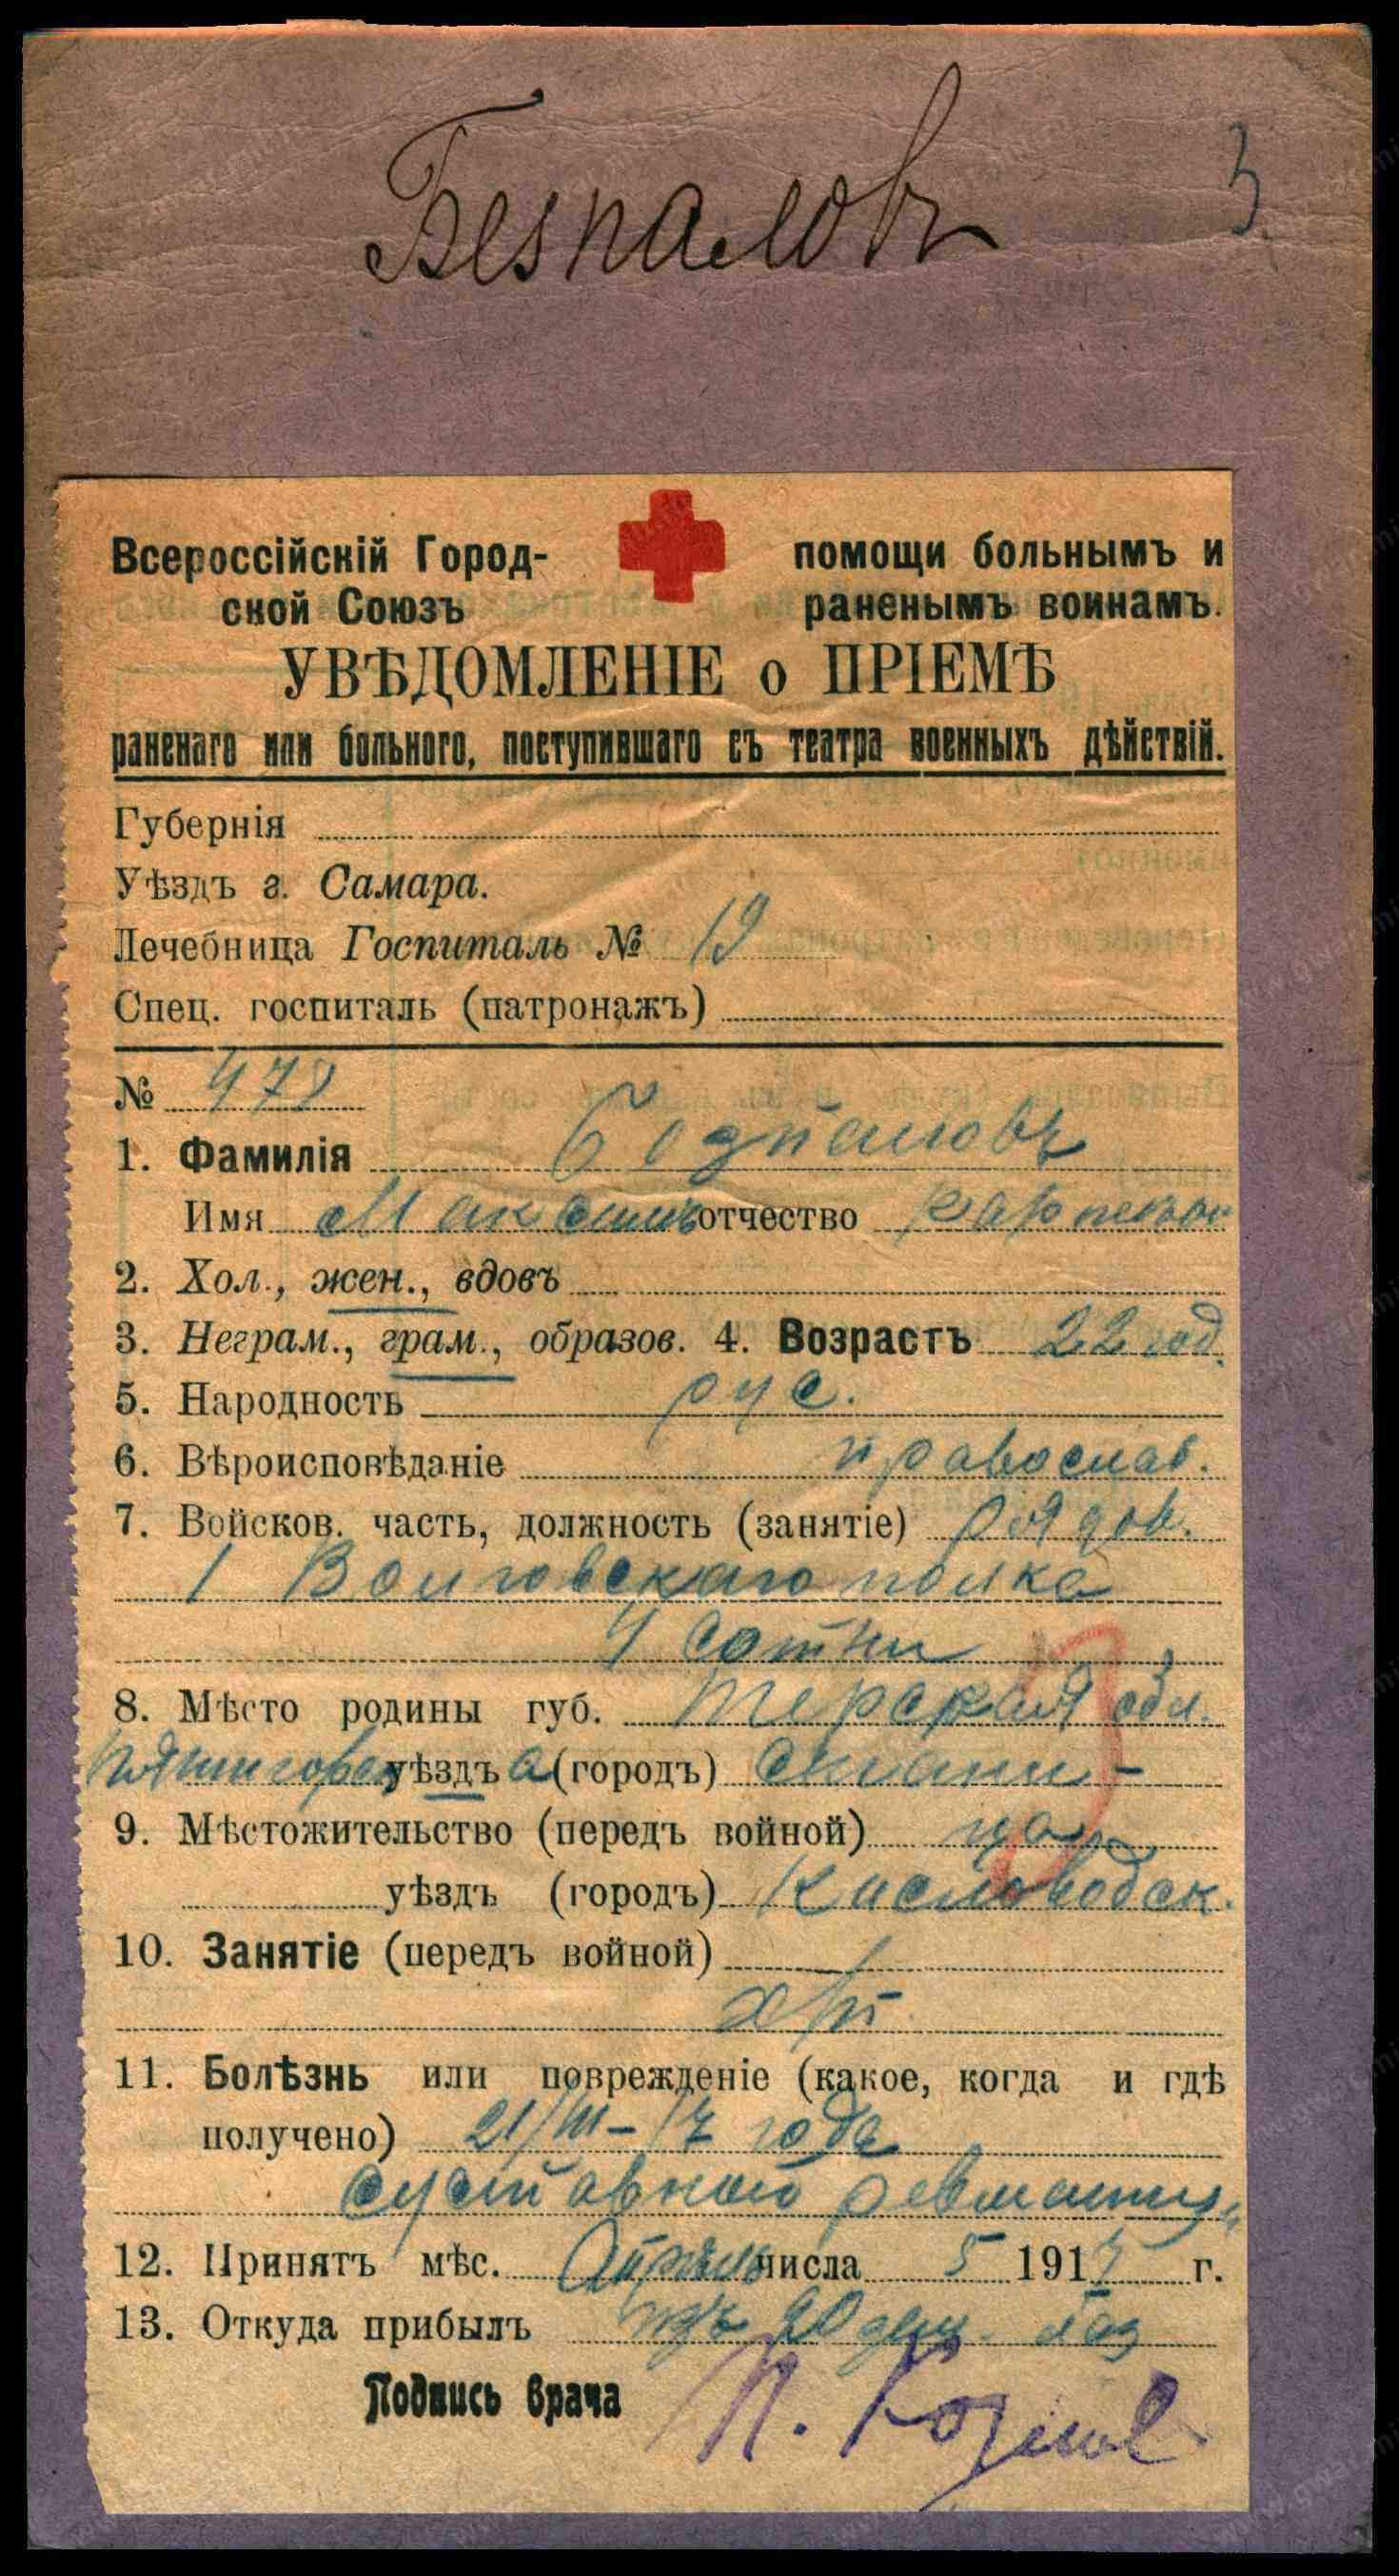 Безпаловъ
Всероссійскій Город-
ской Союзъ
помощи больнымъ и
раненымъ воинамъ.
УВѢДОМЛЕНІЕ о ПРІЕМѢ
раненаго или больного, поступившаго съ театра военныхъ дѣйствій.
Губернія
Уѣздъ г. Самара.
Лечебница Госпиталь № 19
Спец. госпиталь (патронажъ)
№ 478
1. Фамилія
Имя Максимъ отчество
2. Хол., жен., вдовъ
3. Неграм., грам., образов. 4. Возрастъ 22 год.
5. Народность рус.
6. Вѣроисповѣданіе православ.
7. Войсков. часть, должность (занятіе) рядов.
1 Волговскаго полка
4 сотни
8. Мѣсто родины губ. Терская обл.
уѣздъ (городъ)
9. Мѣстожительство (передъ войной)
уѣздъ (городъ) Кисловодск.
10. Занятіе (передъ войной)
11. Болѣзнь или поврежденіе (какое, когда и гдѣ
получено) 21/III–17 года
суставной
12. Принятъ мѣс. Апрѣль числа 5 1917 г.
13. Откуда прибылъ изъ
Подпись врача